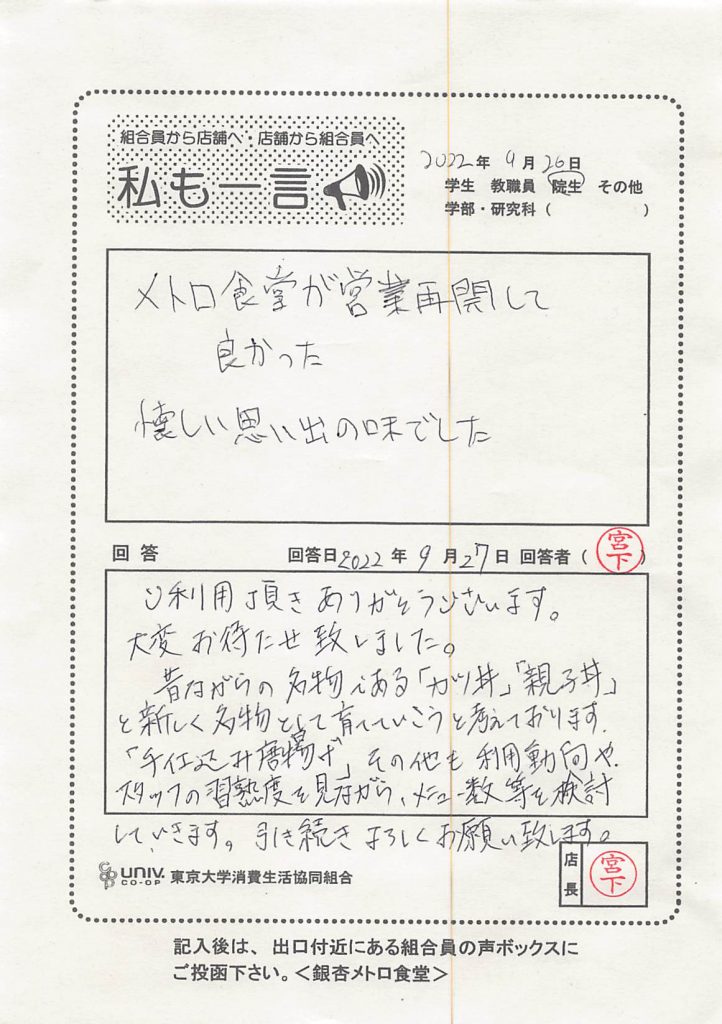 組合員から店舗へ・店舗から組合員へ
私も一言
2022年 9月 26日
学生 教職員 院生 その他
学部・研究科（ ）
メトロ食堂が営業再開して
良かった
懐しい思い出の味でした
回答 回答日 2022年 9月 27日 回答者（宮下）
ご利用頂きありがとうございます。
大変お待たせ致しました。
昔ながらの名物である「カツ丼」「親子丼」
と新しく名物として育てていこうと考えております
「手仕込み唐揚げ」その他も利用動向や
スタッフの習熟度を見ながら、メニュー数等を検討
していきます。引き続きよろしくお願い致します。
店長 宮下
UNIV. CO-OP 東京大学消費生活協同組合
記入後は、出口付近にある組合員の声ボックスに
ご投函下さい。＜銀杏メトロ食堂＞